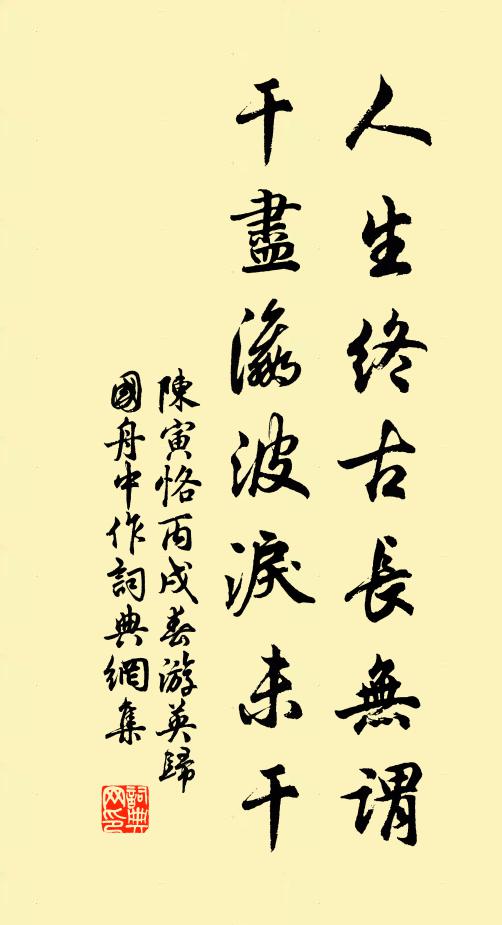 人生終古長無謂
干盡瀛波淚未干
陳寅恪丙戌春游英歸
國舟中作詞典網集
詞典
网印